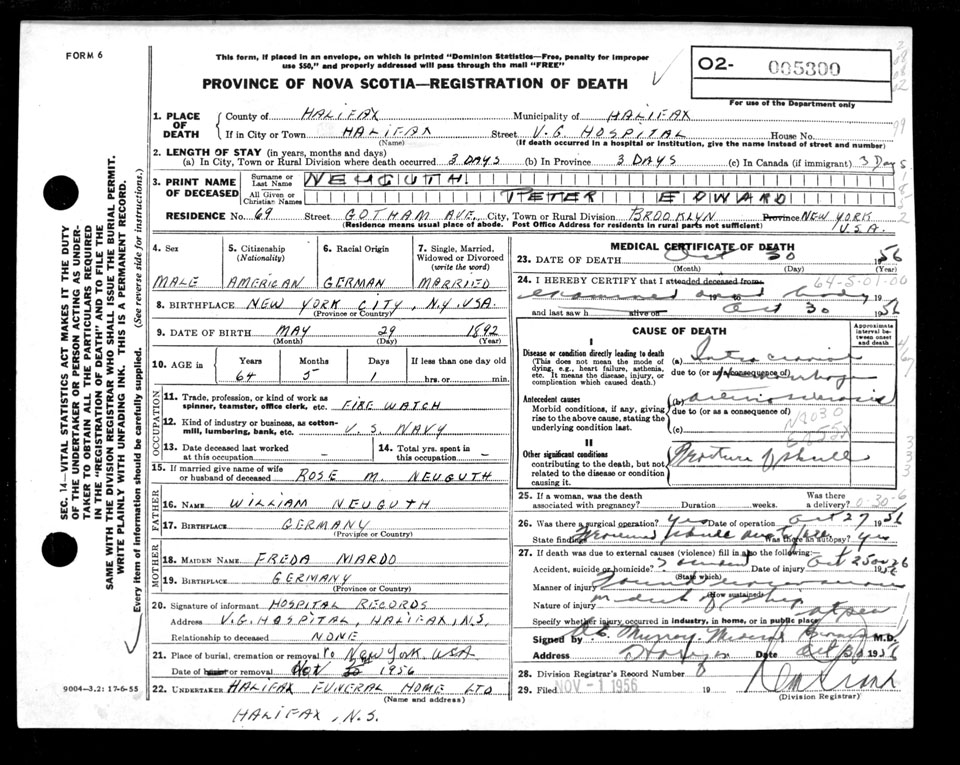 FORM 6
This form, if placed in an envelope, on which is printed "Dominion Statistics—Free, penalty for improper
use $50," and properly addressed will pass through the mail "FREE"
PROVINCE OF NOVA SCOTIA—REGISTRATION OF DEATH
02- 005300
For use of the Department only
SEC. 14—VITAL STATISTICS ACT MAKES IT THE DUTY
OF THE UNDERTAKER OR PERSON ACTING AS UNDER-
TAKER TO OBTAIN ALL THE PARTICULARS REQUIRED
IN THE "REGISTRATION OF DEATH" AND TO FILE THE
SAME WITH THE DIVISION REGISTRAR WHO SHALL ISSUE THE BURIAL PERMIT.
WRITE PLAINLY WITH UNFADING INK. THIS IS A PERMANENT RECORD.
Every item of Information should be carefully supplied. (See reverse side for instructions.)
1. PLACE OF DEATH
County of HALIFAX Municipality of HALIFAX
If in City or Town HALIFAX Street V.G. HOSPITAL House No.
(Name) (If death occurred in a hospital or institution, give the name instead of street and number)
2. LENGTH OF STAY (in years, months and days)
(a) In City, Town or Rural Division where death occurred 3 DAYS (b) In Province 3 DAYS (c) In Canada (if immigrant) 3 Days
3. PRINT NAME OF DECEASED
Surname or Last Name NEUGUTH
All Given or Christian Names PETER EDWARD
RESIDENCE No. 69 Street GOTHAM AVE. City, Town or Rural Division BROOKLYN Province NEW YORK
U.S.A.
(Residence means usual place of abode. Post Office Address for residents in rural parts not sufficient)
4. Sex
MALE
5. Citizenship
(Nationality)
AMERICAN
6. Racial Origin
GERMAN
7. Single, Married,
Widowed or Divorced
(write the word)
MARRIED
8. BIRTHPLACE NEW YORK CITY, N.Y. USA.
(Province or Country)
9. DATE OF BIRTH MAY 29 1892
(Month) (Day) (Year)
10. AGE in Years Months Days If less than one day old
64 5 1 hrs. or min.
OCCUPATION
11. Trade, profession, or kind of work as
spinner, teamster, office clerk, etc. FIRE WATCH
12. Kind of industry or business, as cotton-
mill, lumbering, bank, etc. U.S. NAVY
13. Date deceased last worked
at this occupation -
14. Total yrs. spent in
this occupation -
15. If married give name of wife
or husband of deceased ROSE M. NEUGUTH
FATHER
16. NAME WILLIAM NEUGUTH
17. BIRTHPLACE GERMANY
(Province or Country)
MOTHER
18. MAIDEN NAME FREDA MARDO
19. BIRTHPLACE GERMANY
(Province or Country)
20. Signature of informant HOSPITAL RECORDS
Address V.G. HOSPITAL, HALIFAX, N.S.
Relationship to deceased NONE
21. Place of burial, cremation or removal to NEW YORK, USA
Date of burial or removal Nov 1956
22. UNDERTAKER HALIFAX FUNERAL HOME LTD
(Name and address)
HALIFAX, N.S.
9004-3.2: 17-6-55
MEDICAL CERTIFICATE OF DEATH
23. DATE OF DEATH Oct 30 1956
(Month) (Day) (Year)
64-5-01-00
24. I HEREBY CERTIFY that I attended deceased from
examined body 19
and last saw h alive on Oct 30 1956
CAUSE OF DEATH
Approximate
interval be-
tween onset
and death
I
Disease or condition directly leading to death
(This does not mean the mode of
dying, e.g., heart failure, asthenia,
etc. It means the disease, injury, or
complication which caused death.)
(a) Intracranial
due to (or as a consequence of)
Hemorrhage
Antecedent causes
Morbid conditions, if any, giving
rise to the above cause, stating the
underlying condition last.
(b) arteriosclerosis
due to (or as a consequence of)
(c)
N8030
II
Other significant conditions
contributing to the death, but not
related to the disease or condition
causing it.
Fracture of skull
25. If a woman, was the death
associated with pregnancy? Duration weeks. Was there a delivery?
26. Was there a surgical operation? Yes Date of operation Oct 27 1956
State findings Fractured skull Was there an autopsy? Yes
27. If death was due to external causes (violence) fill in also the following:
Accident, suicide or homicide? ? accident Date of injury Oct 25 1956
(State which)
Manner of injury Found
(How sustained)
Nature of injury on deck of ship
at sea
Specify whether injury occurred in industry, in home, or in public place
Signed by Murray M.D.
Address Halifax Date Oct 30 1956
28. Division Registrar's Record Number
29. Filed NOV - 1 1956 19
(Division Registrar)